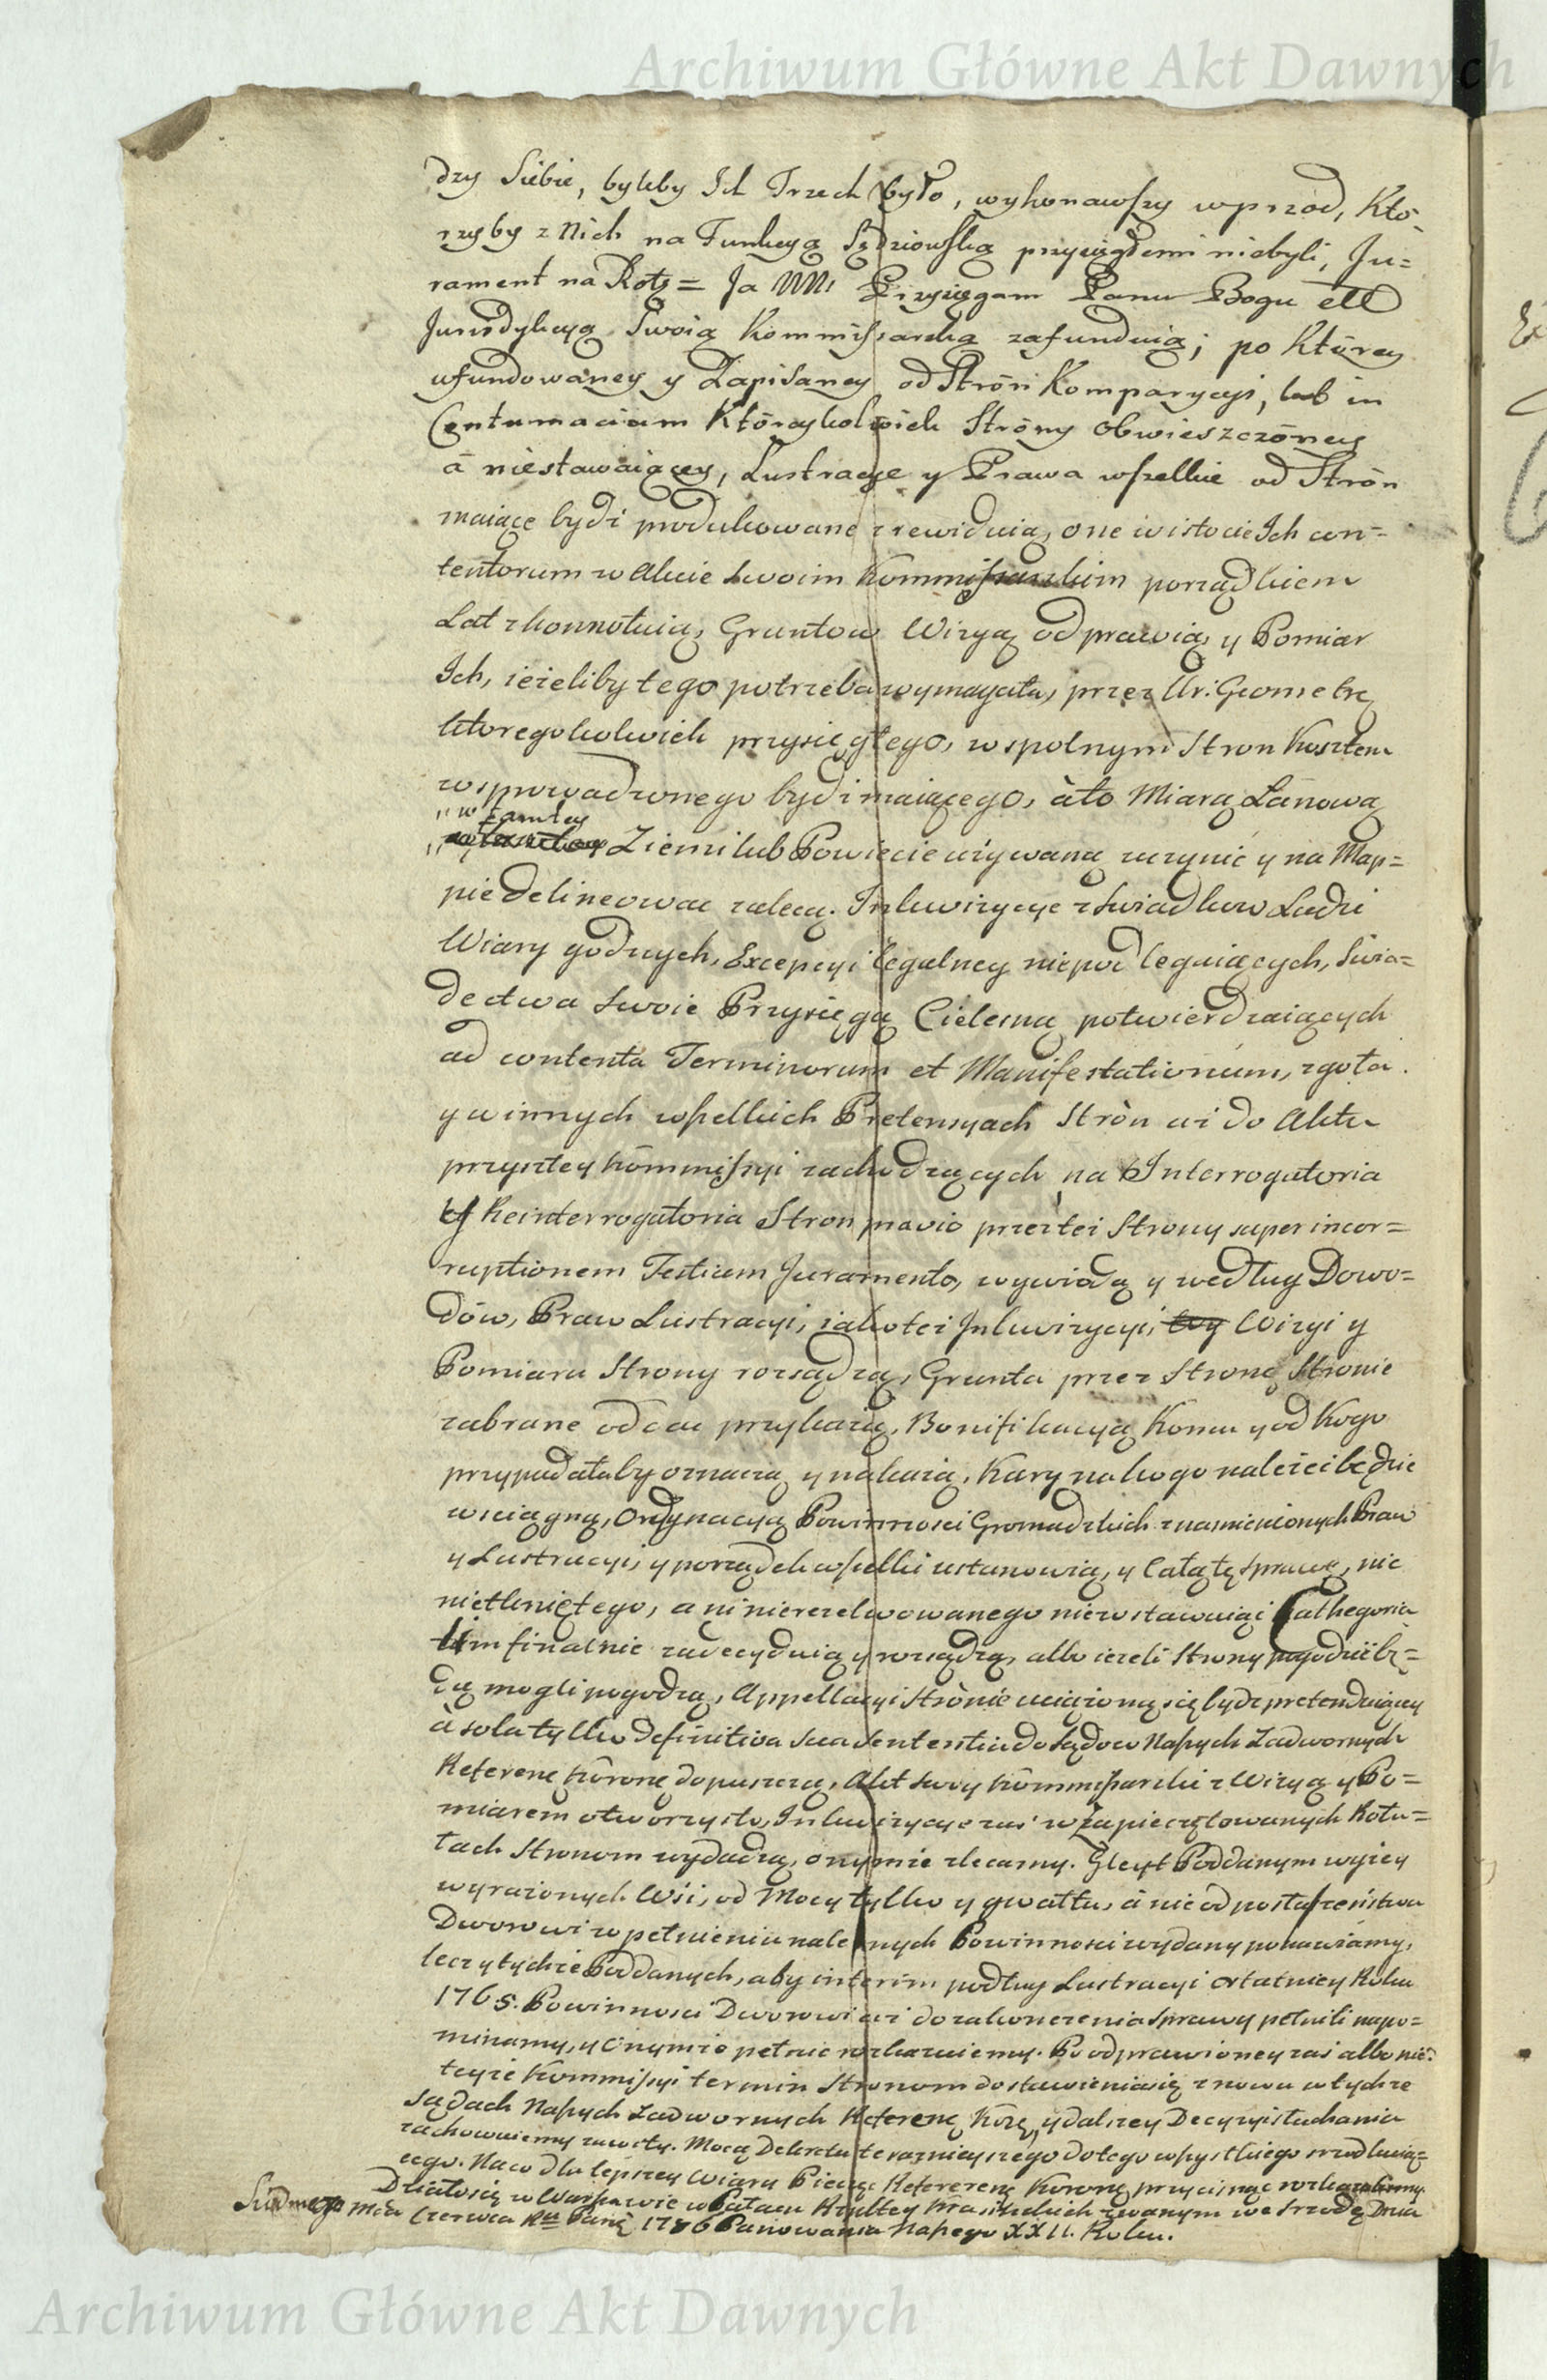 Archiwum Główne Akt Dawnych
dzy Siebie, byleby Ich Trzech było, wykonawszy wprzod, Kto-
rzyby z Nich na Funkcyą Sędziowską przysięgłemi niebyli, Ju=
rament na Rotę = Ja NN: Przysięgam Panu Bogu ett
Jurisdykcyą Swoią Kommissarską zafunduią; po Którey
ufundowaney y Zapisaney od Strón Komparycyi, lub in
Contumaciam Któreykolwiek Stróny obwieszczóney
à niestawaiącey, Lustracye y Prawa wszelkie od Strón
maiące bydź produkowane zrewiduią, one w istocie Ich con=
tentorum w Akcie Swoim Kommissarskim porządkiem
Lat zkonnotuią, Gruntow Wizyą odprawią, y Pomiar
Ich, ieżeliby tego potrzeba wymagała, przez Ur: Geometrę
ktoregokolwiek przysięgłego, wspolnym Stron Kosztem
wsprowadzonego bydź maiącego, à to Miarą Łanową
"w tamtey
" Ziemi lub Powiecie używaną uczynić y na Map=
pie delineować zalecą. Inkwizycye z Swiadkow Ludzi
Wiary godnych, Excepcyi legalney niepodlegaiących, Swia=
dectwa Swoie Przysięgą Cielesną potwierdzaiących
ad contenta Terminorum et Manifestationum, zgoła
y w innych wszelkich Pretensyach Strón aż do Aktu
przyszłey Kommissyi zachodzących na Interrogatoria
y Reinterrogatoria Stron, pravio przez też Strony super incor=
ruptionem Testium Juramento, wywiodą y według Dowo=
dów, Praw Lustracyi, iakoteż Inkwizycyi, Wizyi y
Pomiaru Strony rozsądzą, Grunta przez Stronę Stronie
zabrane oddać przykażą, Bonifikacyą Komu y od Kogo
przypadałaby oznaczą y nakażą, Kary na kogo należeć będzie
wściągną, Ordynacyą Powinnosci Gromadzkich z namienionych Praw
y Lustracyi, y porządek wszelki ustanowią, y Całą tę sprawę, nic
nietkniętego, ani nierezolwowanego niezostawuiąc Cathegoria
tim finalnie zadecyduią y rozsądzą, albo ieżeli Strony pogodzić bę=
dą mogli pogodzą, Appellacyi Strónie uciążoną się bydź pretenduiącey
à sola tylko definitiva Sua Sententia do Sądow Naszych Zadwornych
Referenc: Koronę dopuszczą, Akt Swoy Kommissarski z Wizyą y Po=
miarem otworzysto, Inkwizycye zaś w Zapieczętowanych Rotu=
łach Stronom wydadzą, onymże zlecamy. Gleyt Poddanym wyżey
wyrażonych Wśi, od Mocy tylko y gwałtu, à nie od posłuszeństwa
Dworowi w pełnieniu należnych Powinnosci wydany ponawiamy,
lecz y tychże Poddanych, aby interim podług Lustracyi ostatniey Roku
1765. Powinnosci Dworowi aż do zakonczenia Sprawy pełnili napo=
minamy, y Onymże pełnić rozkazuiemy. Po odprawioney zaś albo nie
teyże Kommissyi termin Stronom do stawienia się znowu w tychże
Sądach Naszych Zadwornych Referenc: Kor:, y dalszey Decyzyi słuchania
zachowuiemy zawity. Mocą Dekretu teraznieyszego do tego wszystkiego srzodkuią=
cego. Na co dla lepszey Wiary Pieczęć Referenc: Koronę przycisnąć rozkazalismy.
Działo się w Warszawie w Pałacu Rzpltey Krasinskich zwanym we Srzodę Dnia
Siudmego Mca Czerwca Rku Panś: 1786 Panowania Naszego XXII. Roku.
Archiwum Główne Akt Dawnych